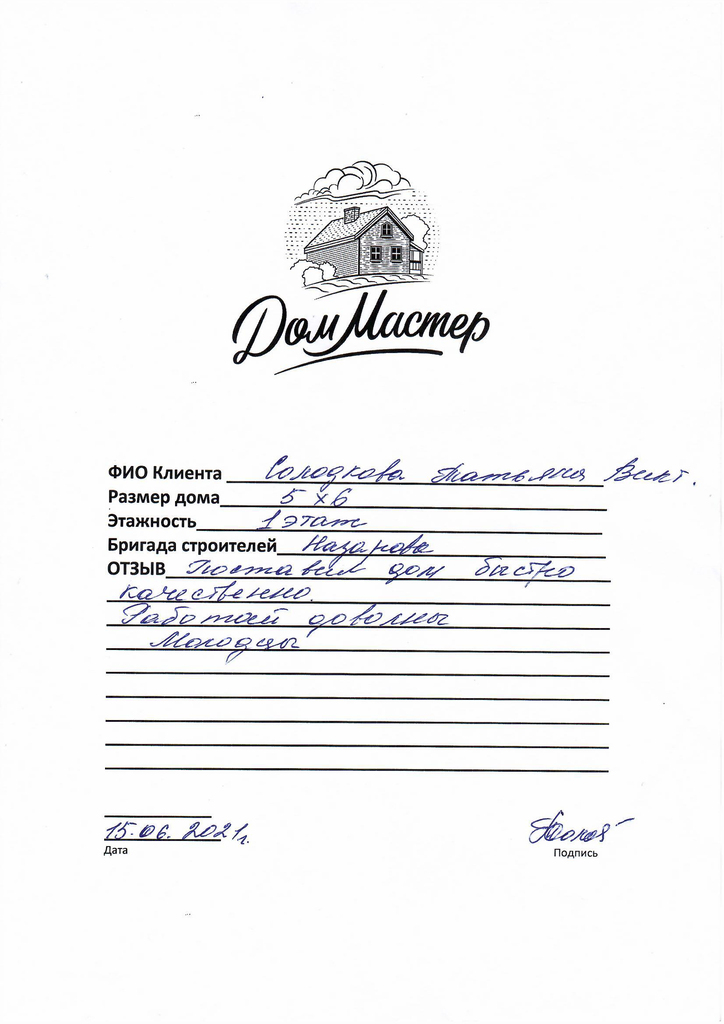 Дом Мастер
ФИО Клиента Солодкова Татьяна Викт.
Размер дома 5 х 6
Этажность 1 этаж
Бригада строителей Назарова
ОТЗЫВ Поставили дом быстро
качественно.
Работой доволны
Молодцы
15.06.2021г.
Дата
Подпись